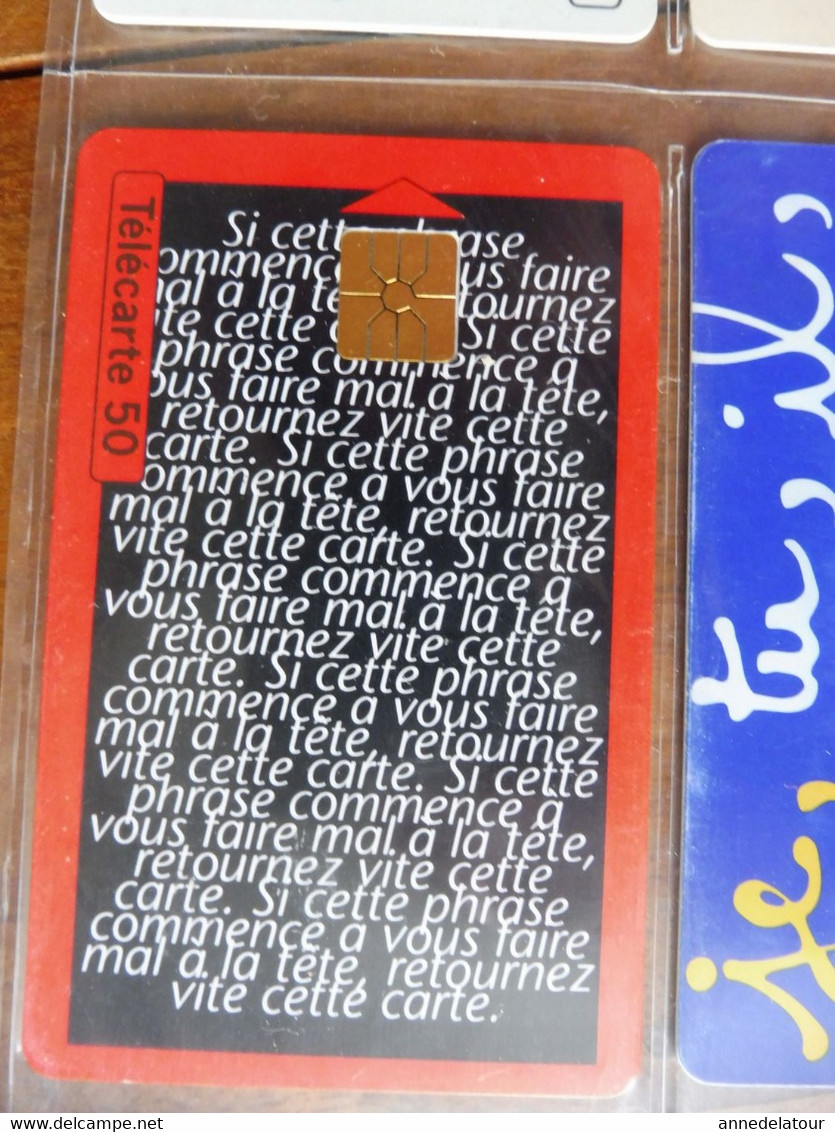 Télécarte 50
Si cette phrase
commence à vous faire
mal à la tête, retournez
vite cette carte. Si cette
phrase commence à
vous faire mal à la tête,
retournez vite cette
carte. Si cette phrase
commence à vous faire
mal à la tête, retournez
vite cette carte. Si cette
phrase commence à
vous faire mal à la tête,
retournez vite cette
carte. Si cette phrase
commence à vous faire
mal à la tête, retournez
vite cette carte. Si cette
phrase commence à
vous faire mal à la tête,
retournez vite cette
carte. Si cette phrase
commence à vous faire
mal à la tête, retournez
vite cette carte.
je, tu, il,
delcampe.net
annedelatour